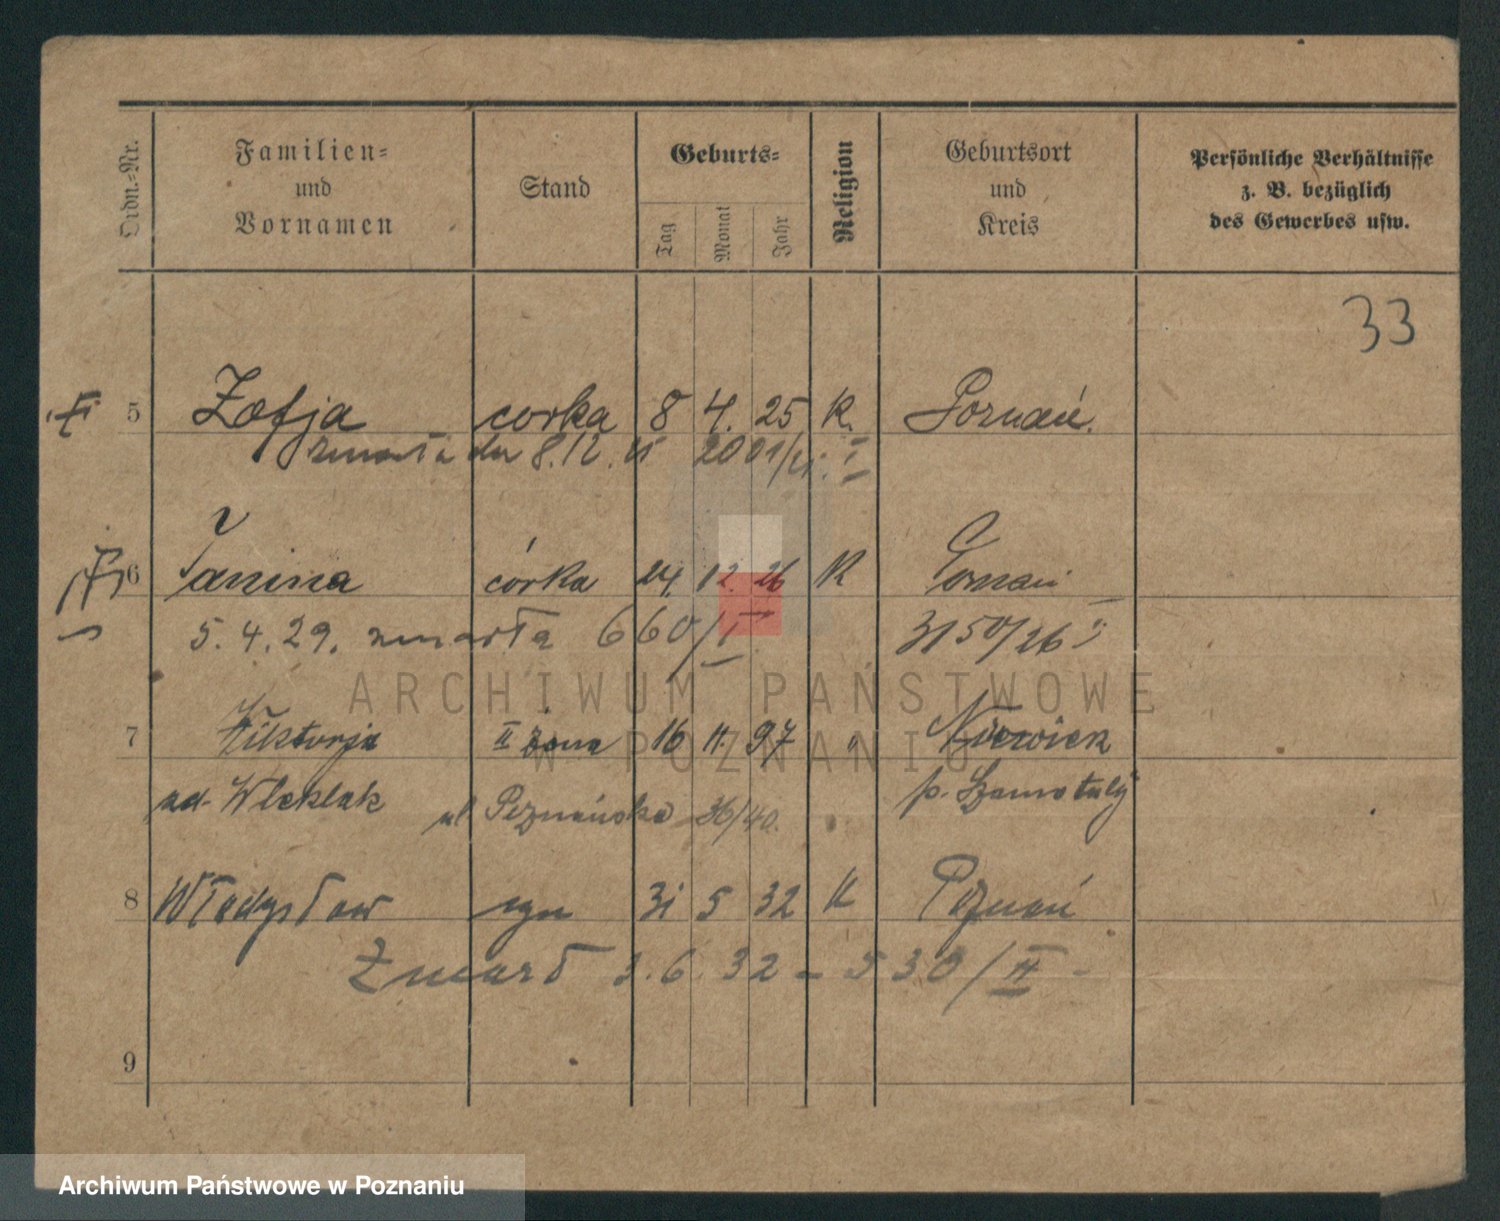 Ordn.-Nr. Familien- und Vornamen Stand Geburts- Tag Monat Jahr Religion Geburtsort und Kreis Persönliche Verhältnisse z. B. bezüglich des Gewerbes usw.
33
5 Zofja corka 8 4. 25 K. Poznań.
zmarła 8.12. 2001/
6 Janina córka 24. 12. 26 K Poznań
5. 4. 29. zmarła 660/II 3150/26
7 Wiktorja II żona 16 11. 97 "
p. Szamotuły
ul Poznańska 36/40.
8 Władysław syn 31 5 32 K Poznań
Zmarł 3. 6. 32 – 530/II –
9
ARCHIWUM PAŃSTWOWE
W POZNANIU
Archiwum Państwowe w Poznaniu